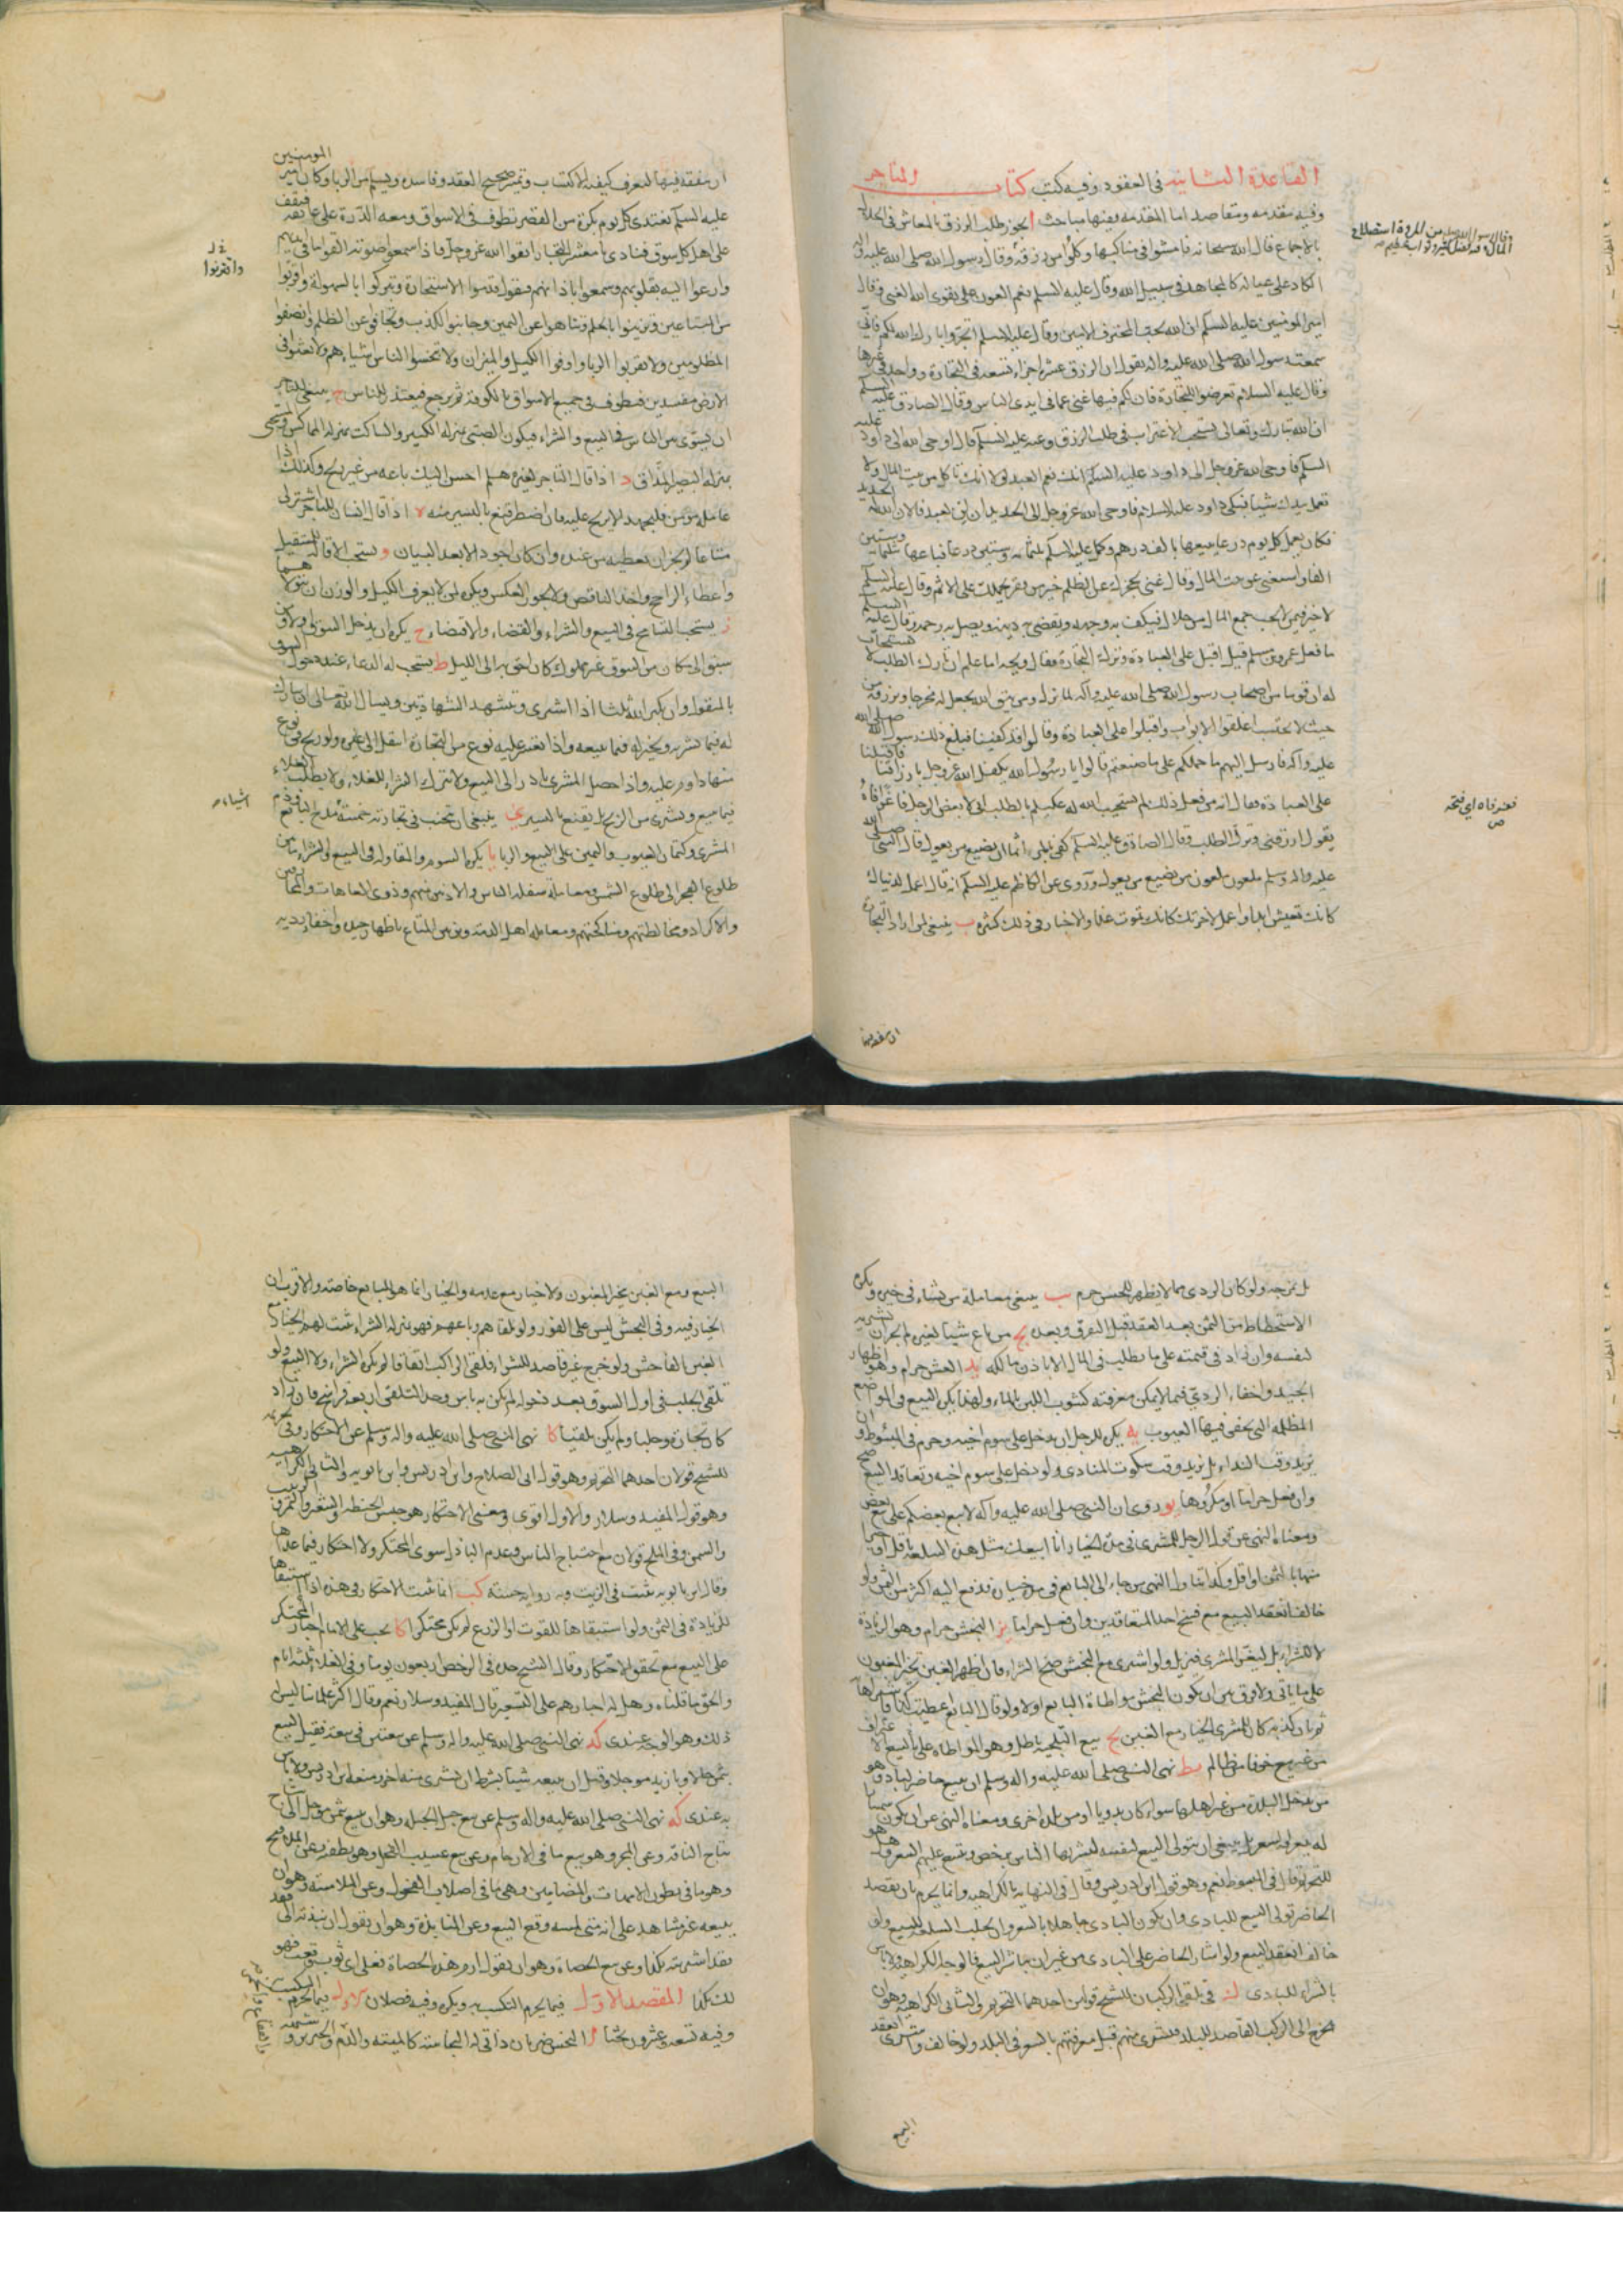 القاعدة الثانية في العقود وفيه كتب كتاب المتاجر
وفيه مقدمه ومقاصد اما المقدمه ففيها مباحث ا يجوز طلب الرزق بالمعاش في الحلال
بالاجماع قال الله سبحانه فامشوا في مناكبها وكلوا من رزقه وقال رسول الله صلى الله عليه واله
الكاد على عياله كالمجاهد في سبيل الله وقال عليه السلم نعم العون على تقوى الله الغنى وقال
امير المؤمنين عليه السلم ان الله يحب المحترف الامين وقال عليه السلم اتجروا بارك الله لكم فاني
سمعت رسول الله صلى الله عليه واله يقول ان الرزق عشرة اجزاء تسعة في التجارة وواحد في غيرها
وقال عليه السلام تعرضوا للتجارة فان لكم فيها غنى عما في ايدي الناس وقال الصادق عليه السلم
ان الله تبارك وتعالى يستحب الاغتراب في طلب الرزق وعنه عليه السلم قال اوحى الله الى داود عليه
السلم فاوحى الله عز وجل الى داود عليه السلم انك نعم العبد لولا انك تاكل من بيت المال ولا
تعمل بيدك شيئا فبكى داود عليه السلم فاوحى الله عز وجل الى الحديد ان لن لعبدي فالان الله له الحديد
فكان يعمل كل يوم درعا يبيعها بالف درهم وعمل عليه السلم ثلثمائه وستين درعا فباعها بثلثمائة وستين
الفا واستغنى عن بيت المال وقال غنى يحجزك عن الظلم خير من فقر يحملك على الاثم وقال عليه السلم
لا خير فيمن لا يحب جمع المال من حلال فيكف به وجهه ويقضي دينه ويصل به رحمه وقال عليه السلم
ما فعل عمر بن مسلم قيل اقبل على العبادة وترك التجارة فقال ويحه اما علم ان تارك الطلب لا يستجاب
له ان قوما من اصحاب رسول الله صلى الله عليه وآله لما نزل ومن يتق الله يجعل له مخرجا ويرزقه من
حيث لا يحتسب اغلقوا الابواب واقبلوا على العبادة وقالوا قد كفينا فبلغ ذلك رسول الله صلى الله
عليه وآله فارسل اليهم ما حملكم على ما صنعتم قالوا يا رسول الله تكفل الله عز وجل بارزاقنا فاقبلنا
على العبادة فقال انه من فعل ذلك لم يستجب الله له عليكم بالطلب اني لابغض الرجل فاغرا فاه
يقول ارزقني ويترك الطلب وقال الصادق عليه السلم كفى بالمرء اثما ان يضيع من يعول وقال النبي صلى الله
عليه واله وسلم ملعون ملعون من يضيع من يعول وروي عن الكاظم عليه السلم انه قال اعمل لدنياك
كانك تعيش ابدا واعمل لاخرتك كانك تموت غدا والاخبار في ذلك كثيرة ب ينبغي لمن اراد التجارة
ان يتفقه فيها
فغر فاه اي فتحه
ص
ان يتفقه فيها ليعرف كيفية الاكتساب وتميز صحيح العقد وفاسده ويسلم من الربا وكان امير المومنين
عليه السلم يغتدى كل يوم بكرة من القصر يطوف في الاسواق ومعه الدرة على عاتقه فيقف
على اهل كل سوق فينادي يا معشر التجار اتقوا الله عز وجل فاذا سمعوا صوته القوا ما في ايديهم
وارعوا اليه بقلوبهم وسمعوا باذانهم فيقول قدموا الاستخارة وتبركوا بالسهولة واقربوا
من المتبايعين وتزينوا بالحلم وتناهوا عن اليمين وجانبوا الكذب وتجافوا عن الظلم وانصفوا
المظلومين ولا تقربوا الربا واوفوا الكيل والميزان ولا تبخسوا الناس اشياءهم ولا تعثوا في
الارض مفسدين فيطوف في جميع الاسواق بالكوفة ثم يرجع فيقعد للناس ج ينبغي للتاجر
ان يسوى بين الناس في البيع والشراء فيكون الصبي بمنزلة الكبير والساكت بمنزلة المماكس والمستحيي
بمنزلة البصير المداق د اذا قال التاجر لغيره هلم احسن اليك باعه من غير ربح وكذلك اذا
عامله مؤمن فليجهد ان لا يربح عليه فان اضطر قنع باليسير منه ه اذا قال انسان للتاجر اشتر لي
متاعا لم يجز ان يعطيه من عنده وان كان اجود الا بعد البيان و يستحب الاقالة للمستقيل
واعطاء الراجح واخذ الناقص ولا يجوز العكس ويكره لمن لا يعرف الكيل والوزن ان يتولاهما
ز يستحب التسامح في البيع والشراء والقضاء والاقتضاء ح يكره ان يدخل السوق اولا ومن
سبق الى مكان من السوق غير مملوك كان احق به الى الليل ط يستحب له الدعاء عند دخول السوق
بالمنقول وان يكبر الله ثلثا اذا اشترى ويتشهد الشهادتين ويسال الله تعالى ان يبارك
له فيما يشتريه ويخير له فيما يبيعه واذا تعسر عليه نوع من التجارة انتقل الى غيره ولو ربح في نوع
منها داوم عليه واذا حصل المشتري بادر الى البيع ولا يترك الشراء للغلاء ولا يطلب الغلاء
فيما يبيع ويشتري من الربح بل يقنع باليسير ي ينبغي ان يجتنب في تجارته خمسة مدح البايع وذم
المشتري وكتمان العيوب واليمين على البيع والربا يا يكره السوم والمقاولة في البيع والشراء ما بين
طلوع الفجر الى طلوع الشمس ومعاملة سفلة الناس والادنين منهم وذوي العاهات والمحارفين
والاكراد ومخالطتهم ومناكحتهم ومعاملة اهل الذمة وتزيين المتاع باظهار جيده واخفاء رديه
واقتربوا
اشياء
بل يمزجه ولو كان الردي مما لا يظهر للحس حرم يب ينبغي معاملة من نشاء في خير ويكره
الاستحطاط من الثمن بعد العقد قبل التفرق وبعده يج من باع شيئا لغيره لم يجز ان يشتريه
لنفسه وان زاد في قيمته على ما يطلب في المال الا باذن مالكه يد الغش حرام وهو اظهار
الجيد واخفاء الردي فيما لا يمكن معرفته كشوب اللبن بالماء ولهذا يكره البيع في المواضع
المظلمة التي يخفى فيها العيوب يه يكره للرجل ان يدخل على سوم اخيه وحرم في المبسوط وان
يزيد وقت النداء بل يزيد وقت سكوت المنادي ولو دخل على سوم اخيه وتعاقد البيع صح
وان فعل حراما او مكروها يو روي ان النبي صلى الله عليه وآله لا يبيع بعضكم على بيع بعض
ومعناه النهي عن قول الرجل للمشتري في مدة الخيار انا ابيعك مثل هذه السلعة باقل او خيرا
منها بالثمن او اقل وكذا يتناول النهي من جاء الى البايع في مدة خياره فدفع اليه اكثر من الثمن ولو
خالف انعقد البيع مع فسخ احد المتعاقدين وان فعل حراما يز النجش حرام وهو الزيادة
لا للشراء بل ليغتر المشتري فيزيد ولو اشترى مع النجش صح الشراء فان ظهر الغبن تخير المغبون
على ما ياتي ولا فرق بين ان يكون النجش بمواطاة البايع او لا ولو قال البايع اعطيت كذا فاشتراها
ثم بان كذبه كان للمشتري الخيار مع الغبن يح بيع التلجية باطل وهو المواطاة على الاعتراف بالبيع
من غير بيع خوفا من ظالم يط نهى النبي صلى الله عليه واله وسلم ان يبيع حاضر لباد وهو
من يدخل البلدة من غير اهلها سواء كان بدويا او من بلد اخرى ومعناه النهي عن ان يكون سمسارا
له يعرفه السعر بل ينبغي ان يتولى البيع لنفسه ليشتريها الناس برخص ويتسع عليهم السعر وهل هو
للتحريم قال في المبسوط نعم وهو قول ابن ادريس وقال في النهاية بالكراهية وانما يحرم بان يقصد
الحاضر تولى البيع للبادي وان يكون البادي جاهلا بالسعر وان جلب السلعة للبيع ولو
خالف انعقد البيع ولو اشار الحاضر على البادي من غير ان يباشر البيع فالوجه الكراهية ولا باس
بالشراء للبادي ك في تلقي الركبان للشيخ قولان احدهما التحريم والثاني الكراهية وهو ان
يخرج الى الركب القاصد للبلد فيشتري منهم قبل معرفتهم بالسعر في البلد ولو خالف واشترى انعقد
البيع
البيع ومع الغبن يتخير المغبون ولا خيار مع عدمه والخيار انما هو للبايع خاصة والاقرب ان
الخيار فيه وفي النجش ليس على الفور ولو تلقاهم وباعهم فهو بمنزلة الشراء يثبت لهم الخيار مع
الغبن الفاحش ولو خرج غير قاصد للشراء فلقي الراكب اتفاقا لم يكره الشراء ولا البيع ولو
تلقى الجلب في اول السوق بعد دخوله لم يكن به باس وحد التلقي اربعة فراسخ فان زاد
كان تجارة وجلبا ولم يكن تلقيا كا نهى النبي صلى الله عليه واله وسلم عن الاحتكار وفي تحريمه
للشيخ قولان احدهما التحريم وهو قول ابي الصلاح وابن ادريس وابن بابويه والثاني الكراهية
وهو قول المفيد وسلار والاول اقوى ومعنى الاحتكار هو حبس الحنطة والشعير والتمر والزبيب
والسمن وفي الملح قولان مع احتياج الناس وعدم الباذل سوى المحتكر ولا احتكار فيما عداها
وقال ابن بابويه يثبت في الزيت وبه رواية حسنة كب انما يثبت الاحتكار في هذه اذا استبقاها
للزيادة في الثمن ولو استبقاها للقوت او الزرع لم يكن محتكرا كا يجب على الامام اجبار المحتكر
على البيع مع تحقق الاحتكار وقال الشيخ حده في الرخص اربعون يوما وفي الغلاء ثلثة ايام
والحق ما قلناه وهل له اجبارهم على التسعير قال المفيد وسلار نعم وقال اكثر علمائنا ليس له
ذلك وهو الوجه عندي كد نهى النبي صلى الله عليه واله وسلم عن بيعتين في بيعة فقيل البيع
بثمن حالا وبازيد مؤجلا وقيل ان يبيعه شيئا بشرط ان يشتري منه اخر ومنعه ابن ادريس ولا باس
به عندي كه نهى النبي صلى الله عليه واله وسلم عن بيع حبل الحبلة وهو ان يبيع بثمن مؤجل الى نتاج
نتاج الناقة وعن المجر وهو بيع ما في الارحام وعن بيع عسيب الفحل وهو نطفته وعن الملاقيح
وهو ما في بطون الامهات والمضامين وهي ما في اصلاب الفحول وعن الملامسة وهو ان
يبيعه غير مشاهد على انه متى لمسه وقع البيع وعن المنابذة وهو ان يقول ان نبذته الى فقد
فقد اشتريته بكذا وعن بيع الحصاة وهو ان يقول ارم هذه الحصاة فعلى اي ثوب وقعت فهو
لك بكذا المقصد الاول فيما يحرم التكسب به ويكره وفيه فصلان الاول فيما يحرم التكسب به
وفيه تسعة وعشرون بحثا ا النجس ضربان ذاتي له النجاسة كالميتة والدم والخنزير